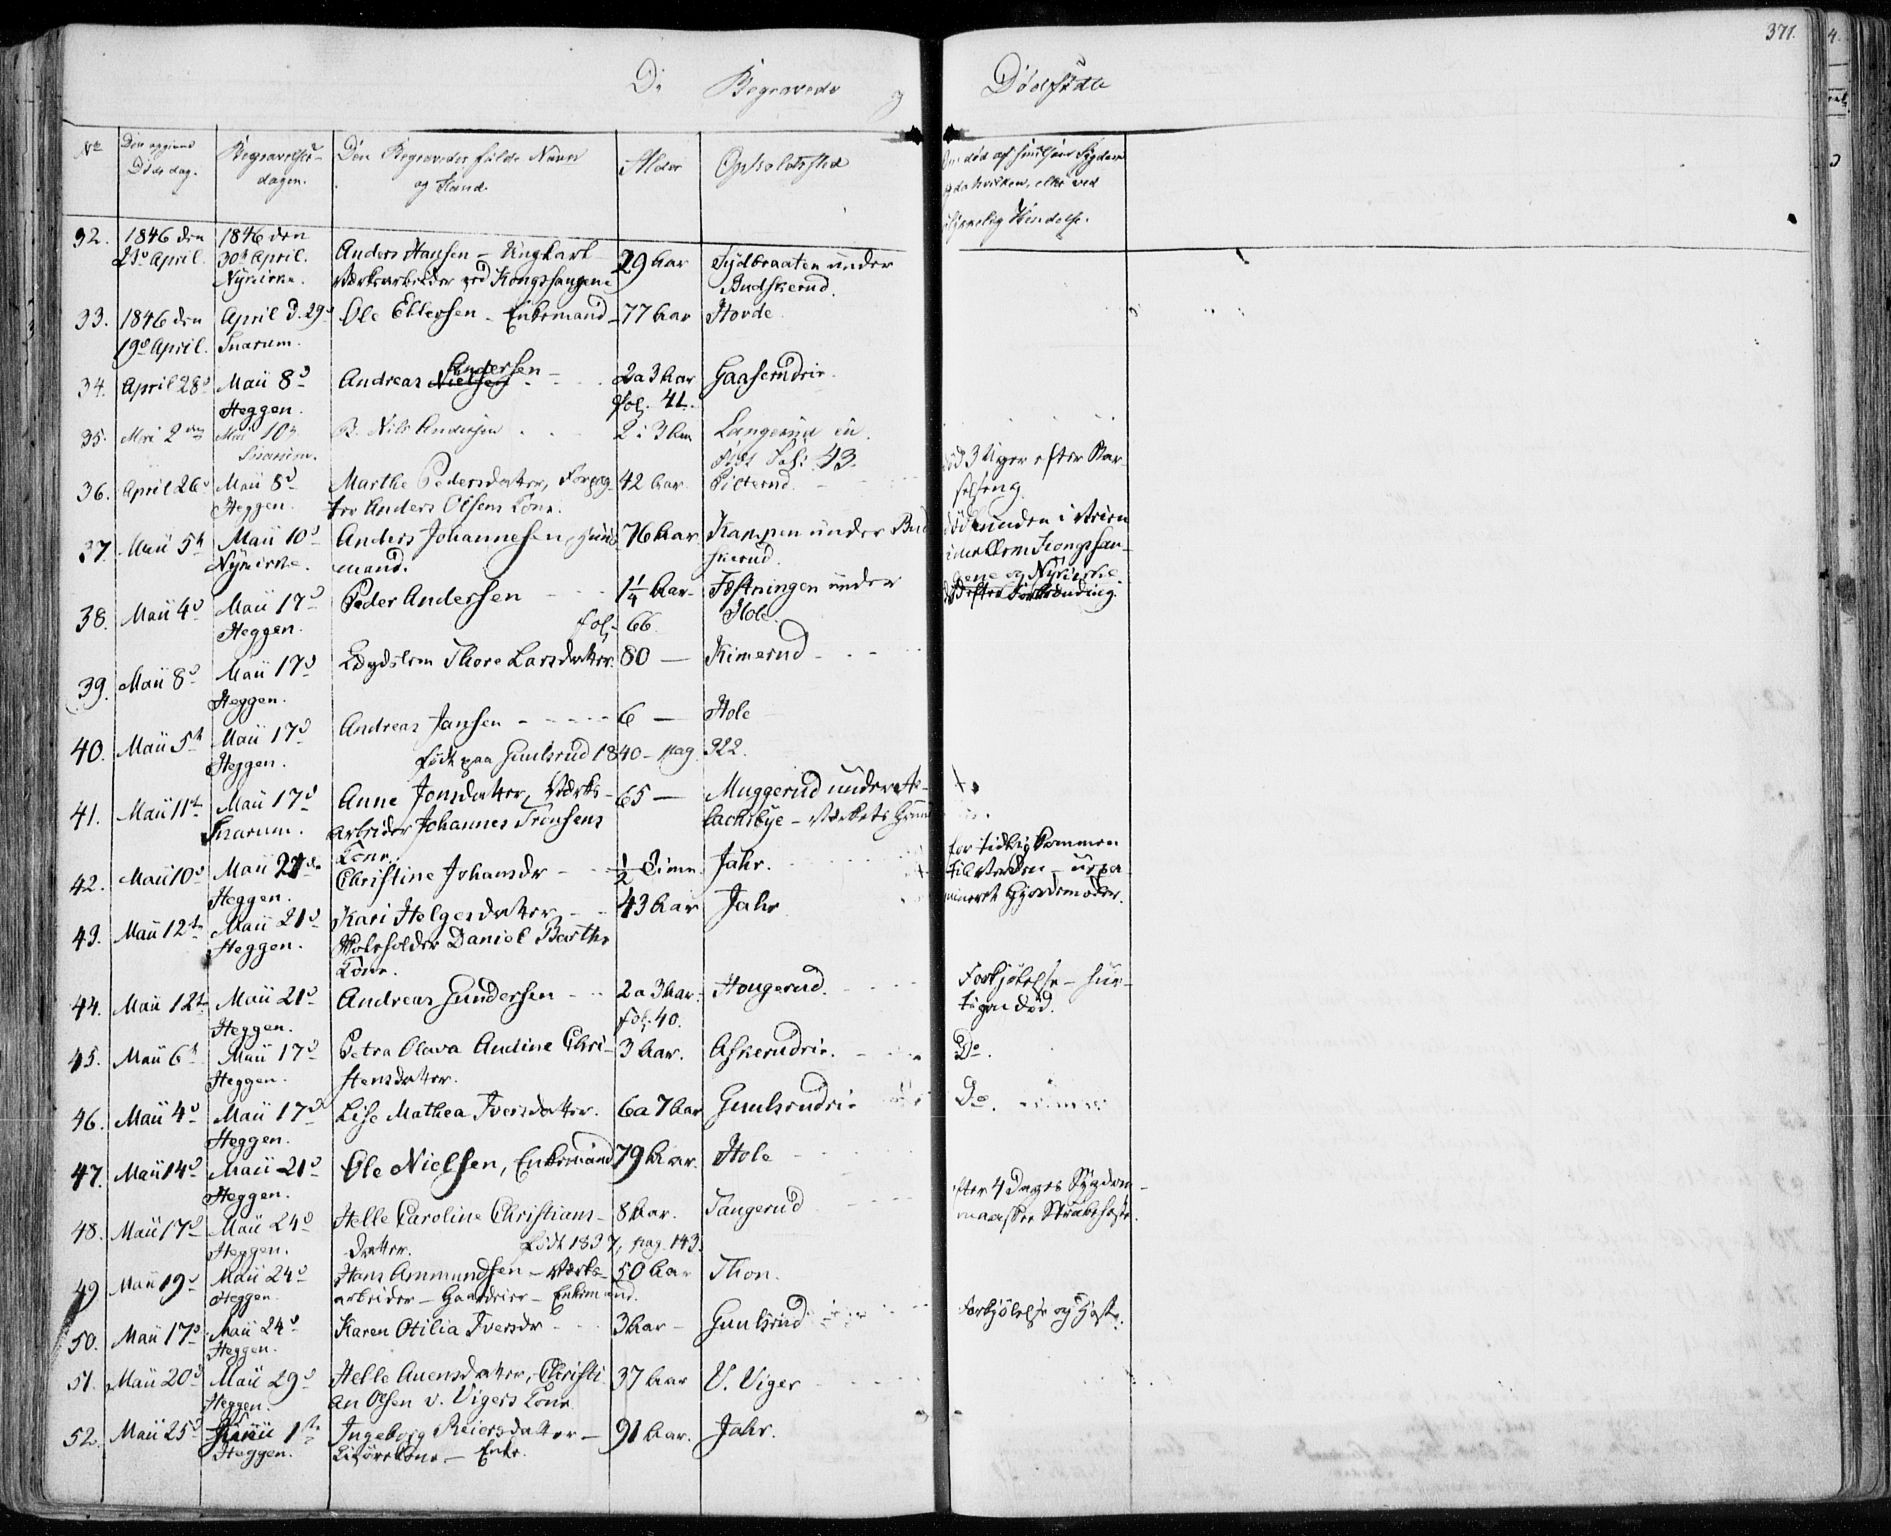 371.
De Begravede og Dødfødte
No
Den opgivne Dødsdag.
Begravelses-dagen.
Den Begravedes fulde Navn og Stand.
Alder
Opholdssted
32. 1846 den 1846 den
April. 30te April. Anders Hansen - Ungkarl 29 Aar Sydbraaten under
Nykirke. Værksarbeider ved Kongssaugene Budskerud.
33. 1846 den April d. 29de Ole Ellersen - Enkemand 77 Aar Hovde
19de April. Snarum.
34. April 28de Maii 8de Andreas Nielsen Andersen 2 a 3 Aar Gaaserudeie
Heggen. fol. 41.
35. Mai 2den Mai 10de B. Nils Andersen 2 i 3 Aar Langerud
Snarum. født Fol: 43.
36. April 26de Maii 8de Marthe Pedersdatter, 42 Aar død 3 Uger efter Bar-
Heggen. Anders Olsens Kone. selseng.
37. Maii 5te Maii 10de Anders Johannesen, Huus- 76 Aar Kampen under Bud- død funden i Veien
Nykirke. mand. skerud. imellem Kongssau-
gene og Nykirke.
38. Maii 4de Maii 17de Peder Andersen 1 1/4 Aar Fæstningen under død efter Forbrænding.
Heggen. fol. 66. Hole.
39. Maii 8de Maii 17de Lægdslem Thore Larsdatter 80 — Kimerud
Heggen.
40. Maii 5te Maii 17de Andreas Jansen 6 — Hole
Heggen. født paa Gunlsrud 1840 - pag 322.
41. Maii 11te Maii 17de Anne Jonsdatter, Værks- 65 — Muggerud under
Snarum. arbeider Johannes Tronsens Værkets Grund
Kone.
42. Maii 10de Maii 21de Christine Johansdr 1/2 Time Jahr. for tidlig kommen
Heggen. til Verden - uexa-
mineret Gjordemoder.
43. Maii 12te Maii 21de Kari Helgesdatter 43 Aar Jahr
Heggen. Daniel Barths
Kone.
44. Maii 12te Maii 21de Andreas Gundersen 2 a 3 Aar. Hougerud. Forkjølelse - hur-
Heggen. fol. 40. tigen død.
45. Maii 6te Maii 17de Petra Olava Andine Chri- 3 Aar. Askerudeie. Do.
Heggen. stensdatter.
46. Maii 4de Maii 17de Lise Mathea Iversdatter. 6 a 7 Aar Gunlsrudeie Do.
Heggen.
47. Maii 14de Maii 21de Ole Nielsen, Enkemand 79 Aar. Hole
Heggen.
48. Maii 17de Maii 24de Helle Caroline Christians- 8 Aar. Tangerud efter 4 Dages Sygdom -
Heggen. datter. født 1837, pag. 143. maaskee Strubehoste.
49 Maii 19de Maii 24de Hans Ammundsen - Værks- 50 Aar Thon.
Heggen. arbeider - Gaardeier - Enkemand.
50. Maii 17de Maii 24de Karen Otilia Iversdr 3 Aar - Gunlsrud Forkjølelse og Hoste.
Heggen.
51. Maii 20de Maii 29de Helle Auensdatter, Christi- 37 Aar V. Viger
Heggen. an Olsen v. Vigers Kone.
52. Maii 25de Junii 1ste Ingeborg Reiersdatter - 91 Aar. Jahr.
Heggen. - Enke.